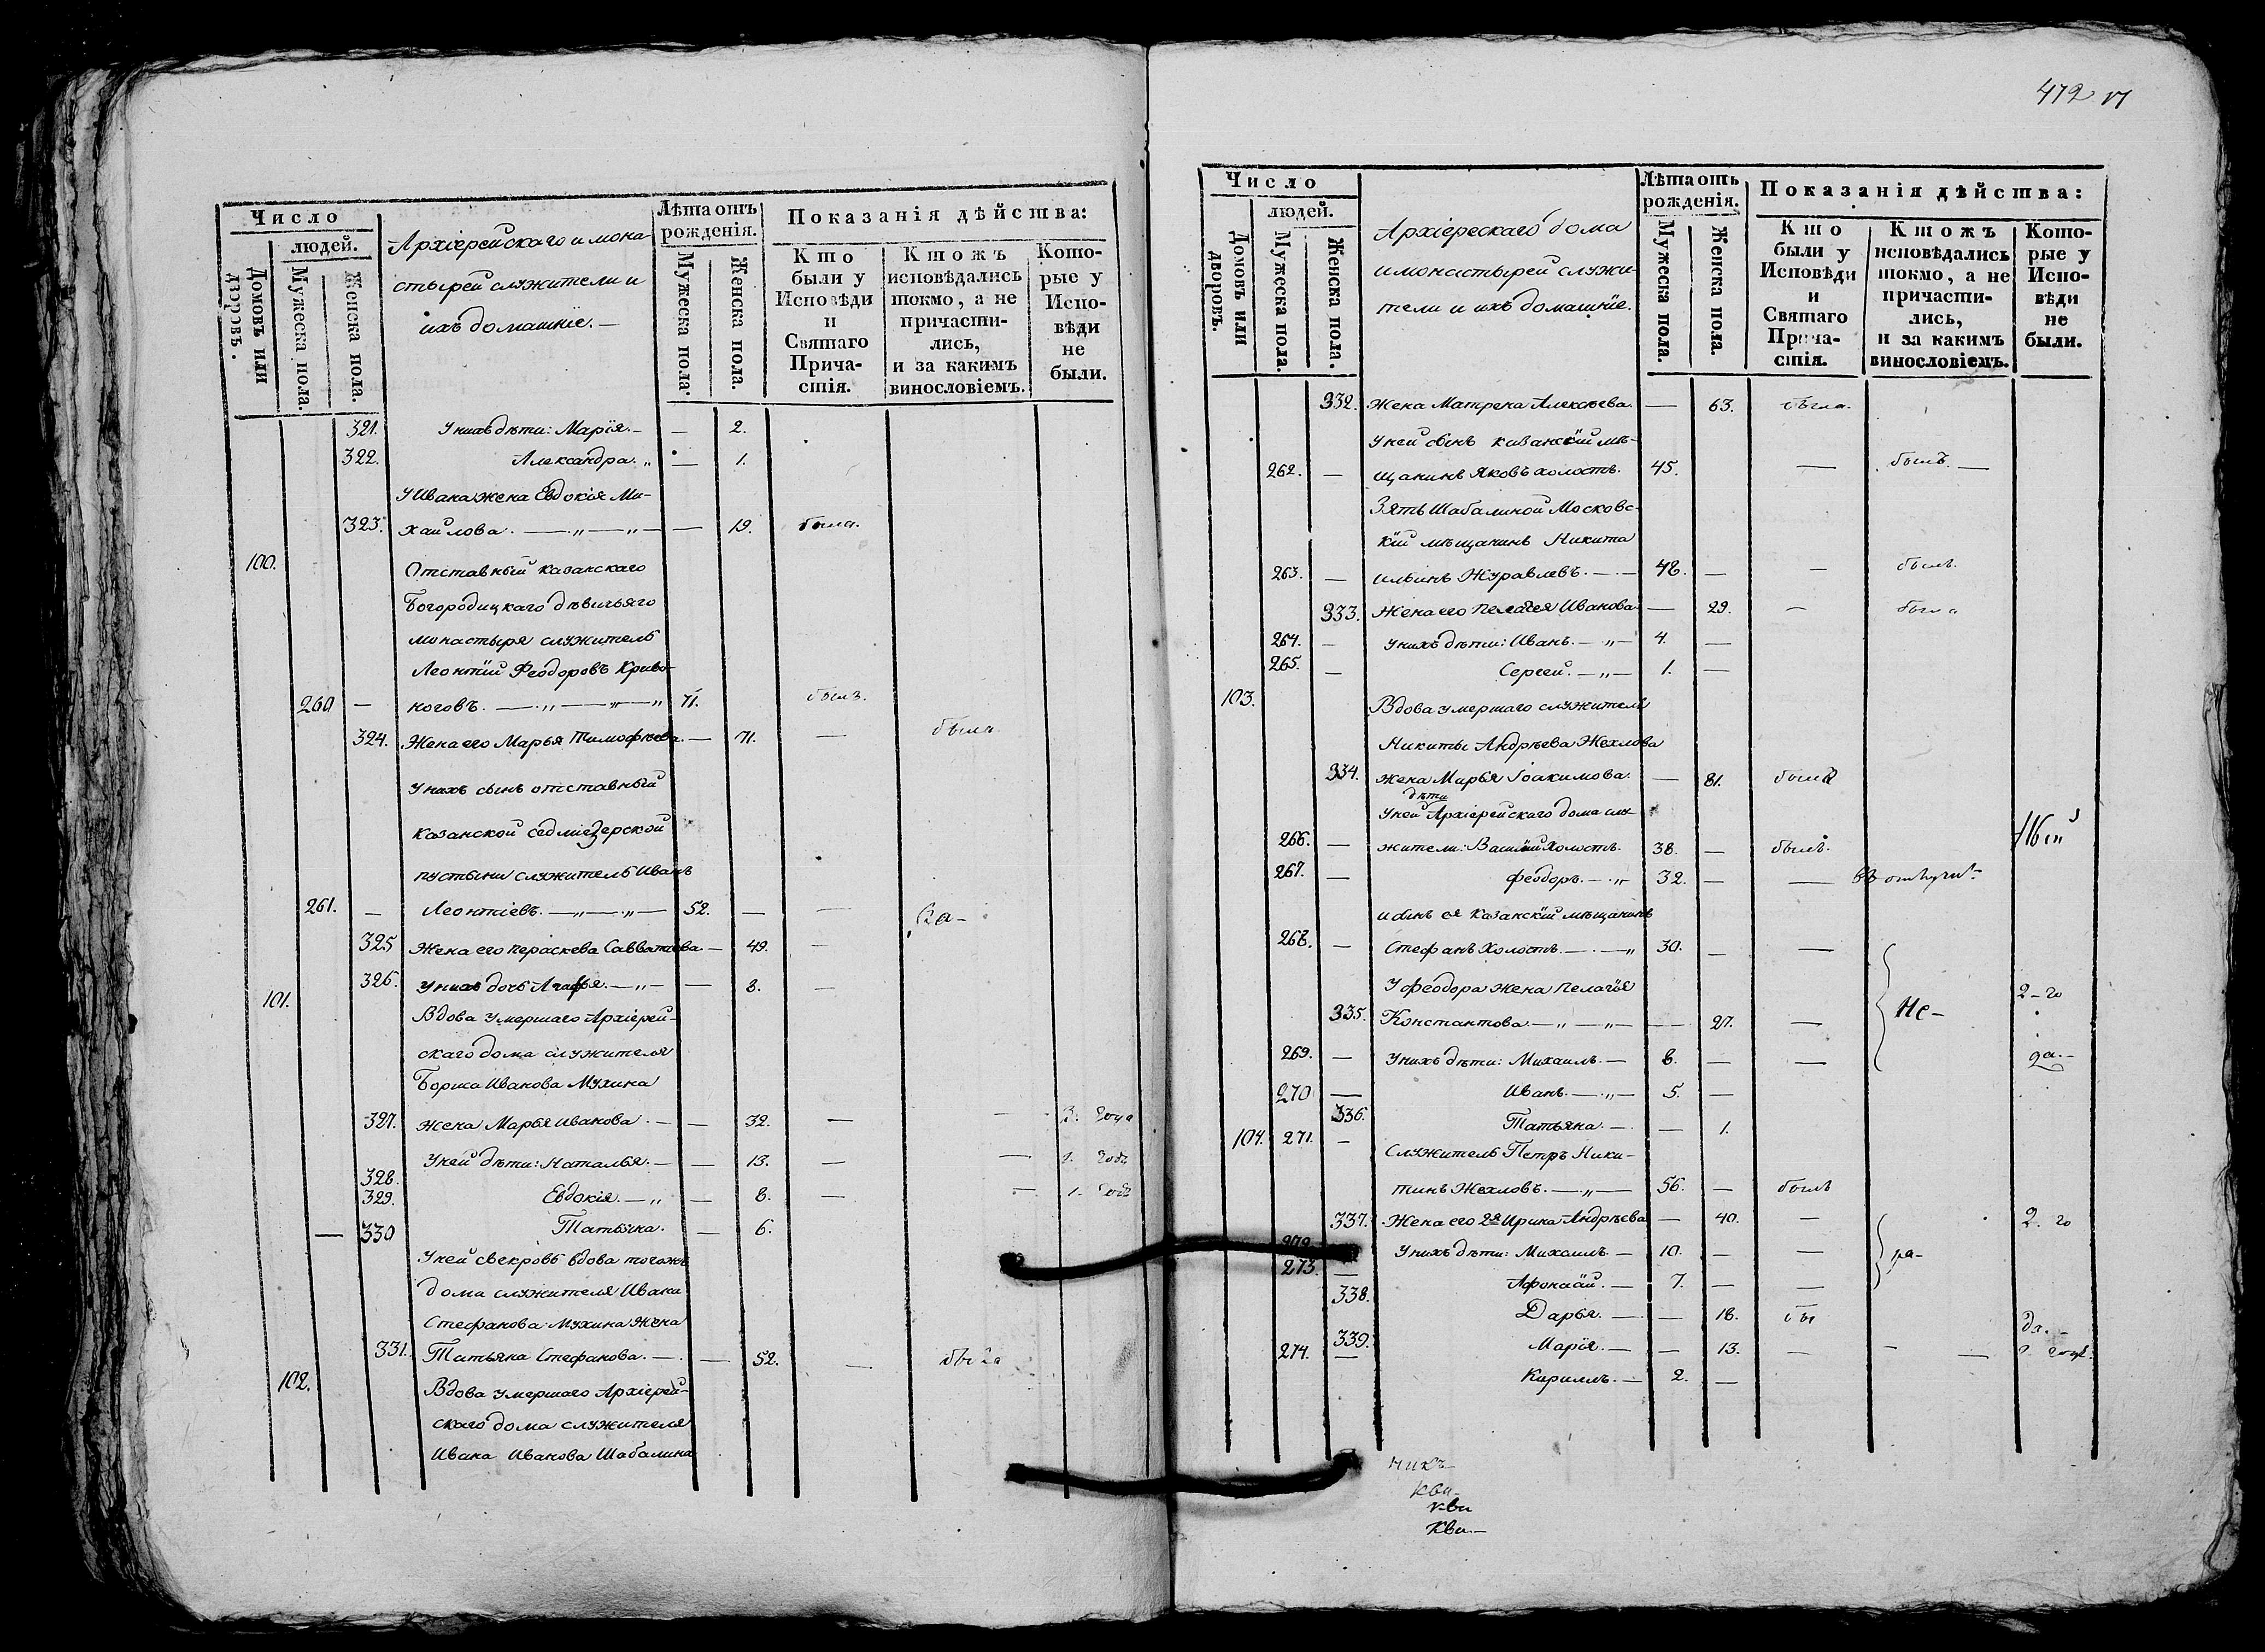 412
Число
людей.
Домовъ или дворовъ.
Мужеска пола.
Женска пола.
Архіерейскаго и мона-
стырей служители и
ихъ домашніе. —
Лѣта отъ рожденія.
Мужеска пола.
Женска пола.
Показанія дѣйства:
Кто были у Исповѣди и Святаго Прича-стія.
Ктожъ исповѣдались токмо, а не причасти-лись, и за какимъ винословіемъ.
Кото-рые у Испо-вѣди не были.
321. У нихъ дѣти: Марія. — — 2.
322. Александра. „ — 1.
У Ивана жена Евдокія Ми-
323. хайлова. — „ — „ — — 19. была.
100. Отставный Казанскаго
Богородицкаго дѣвичьяго
монастыря служитель
Леонтій Феодоровъ Криво-
260 — ноговъ. — „ — „ — „ 71. былъ.
324. Жена его Марья Тимофѣева. — 71. — была
У нихъ сынъ отставный
Казанской седміезерской
пустыни служитель Иванъ
261. — Леонтіевъ. — „ — „ — 52. — —
325 Жена его Параскева Савватиева — 49. —
326. У нихъ дочь Агафья. — „ — — 8. —
101. Вдова умершаго Архіерей-
скаго дома служителя
Бориса Иванова Мухина
327. жена Марья Иванова. — — 32. — — 3. года
328. У ней дѣти: Наталья. — — 13. — — 1. годъ
329. Евдокія. — „ — 8. — — 1. годъ
— 330 Татьяна. — 6.
У ней свекровь вдова тогожъ
дома служителя Ивана
Стефанова Мухина жена
331. Татьяна Стефанова. — — 52. — была
102. Вдова умершаго Архіерей-
скаго дома служителя
Ивана Иванова Шабалина
Число
людей.
Домовъ или дворовъ.
Мужеска пола.
Женска пола.
Архіерескаго дома
и монастырей служи-
тели и ихъ домашніе.
Лѣта отъ рожденія.
Мужеска пола.
Женска пола.
Показанія дѣйства:
Кто были у Исповѣди и Святаго Прича-стія.
Ктожъ исповѣдались токмо, а не причасти-лись, и за какимъ винословіемъ.
Кото-рые у Испо-вѣди не были.
332. Жена Матрена Алексѣева. — 63. была.
У ней сынъ казанскій мѣ-
262. — щанинъ Яковъ холостъ. 45. — былъ. —
Зять Шабалиной Московс-
кій мѣщанинъ Никита
263. — Ильинъ Журавлевъ. — — 48. — — былъ.
333. Жена его Пелагея Иванова — 29. — была
264. — У нихъ дѣти: Иванъ. — „ — 4. —
265. — Сергей. — „ — 1. —
103. Вдова умершаго служителя
Никиты Андрѣева Жехлова
334. жена Марья Іоакимова. — 81. была
дѣти
У ней Архіерейскаго дома слу-
266. — жители: Василій Холостъ. 38. — былъ.
267. — Феодоръ. — „ 32. — — въ отлучкѣ
и сынъ ея Казанскій мѣщанинъ
268. — Стефанъ Холостъ. — — „ 30. — —
У Феодора жена Пелагія
335. Константова. — „ — „ — — 27. — Не- 2-го
269. — У нихъ дѣти: Михаилъ. — 8. — — да. —
270 — Иванъ. — „ — 5. —
336. Татьяна. — — 1.
104. 271. — Служитель Петръ Ники-
тинъ Жехловъ. — „ — 56. — былъ
337. Жена его 2я Ирина Андрѣева — 40. — 2. го
272. У нихъ дѣти: Михаилъ. — 10. — —
273. — Афонасій. — 7. — —
338. Дарья. — — 18. бы да. —
339. Марія. — — 13. — — —
274. — Кириллъ. — 2. —